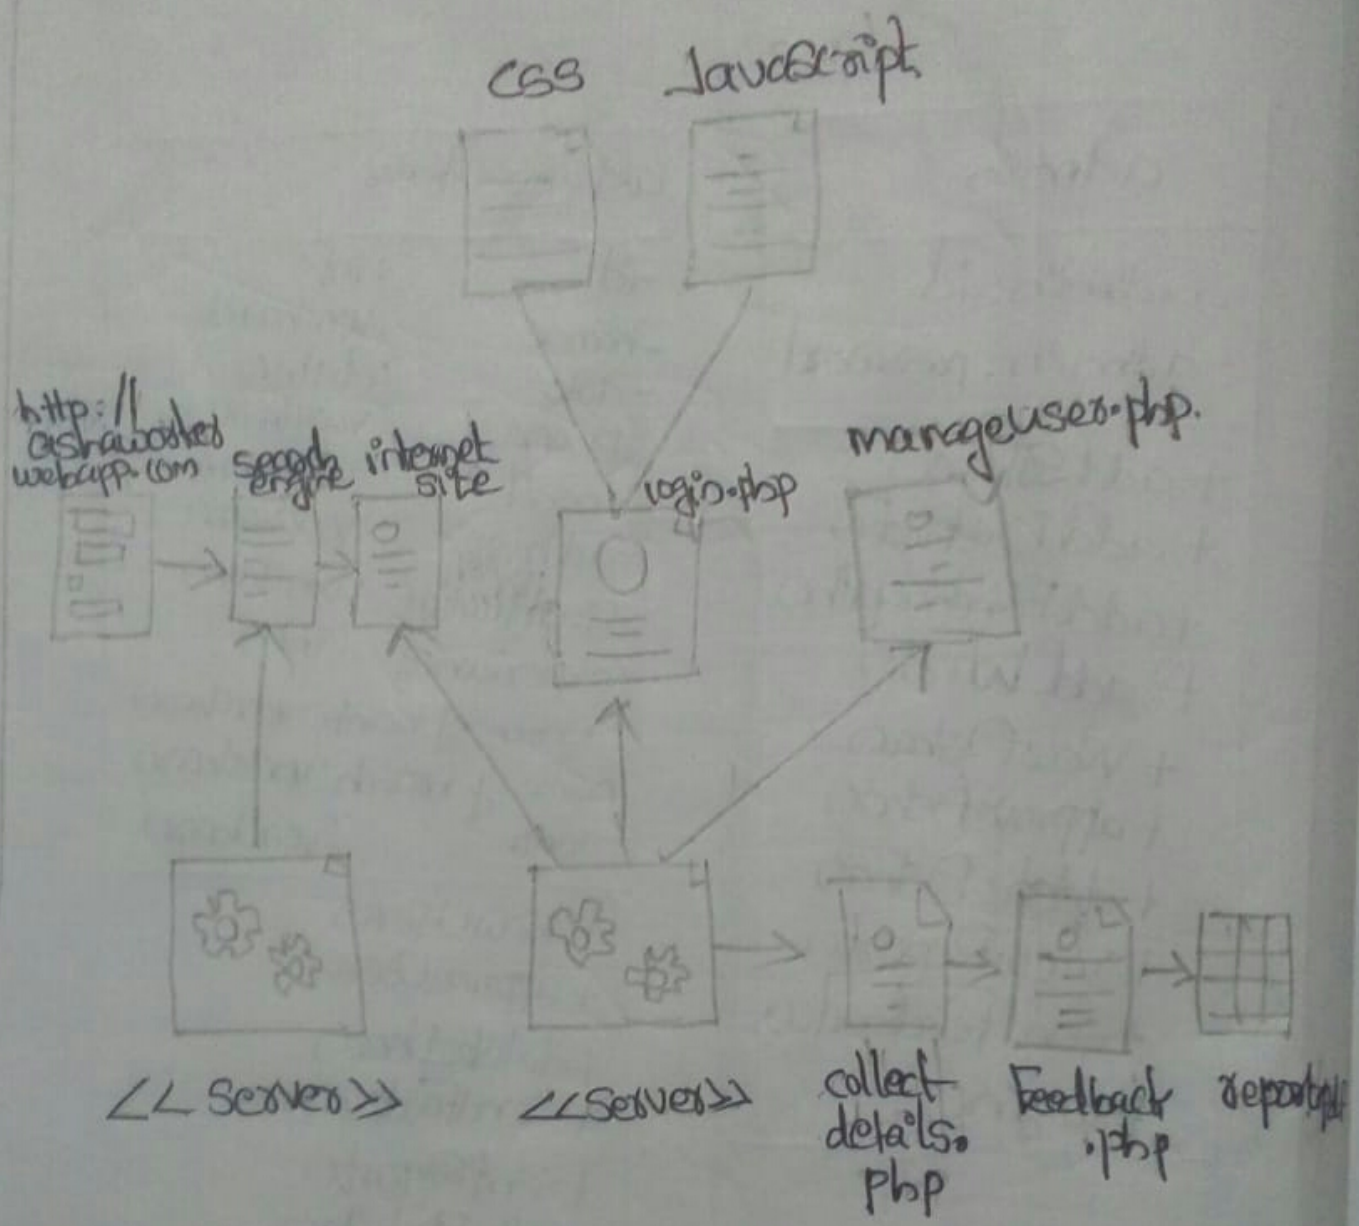 CSS
JavaScript
http://
ashaworker
webapp.com
search
engine
internet
site
login.php
manageuser.php.
<<server>>
<<server>>
collect
details.
php
Feedback
.php